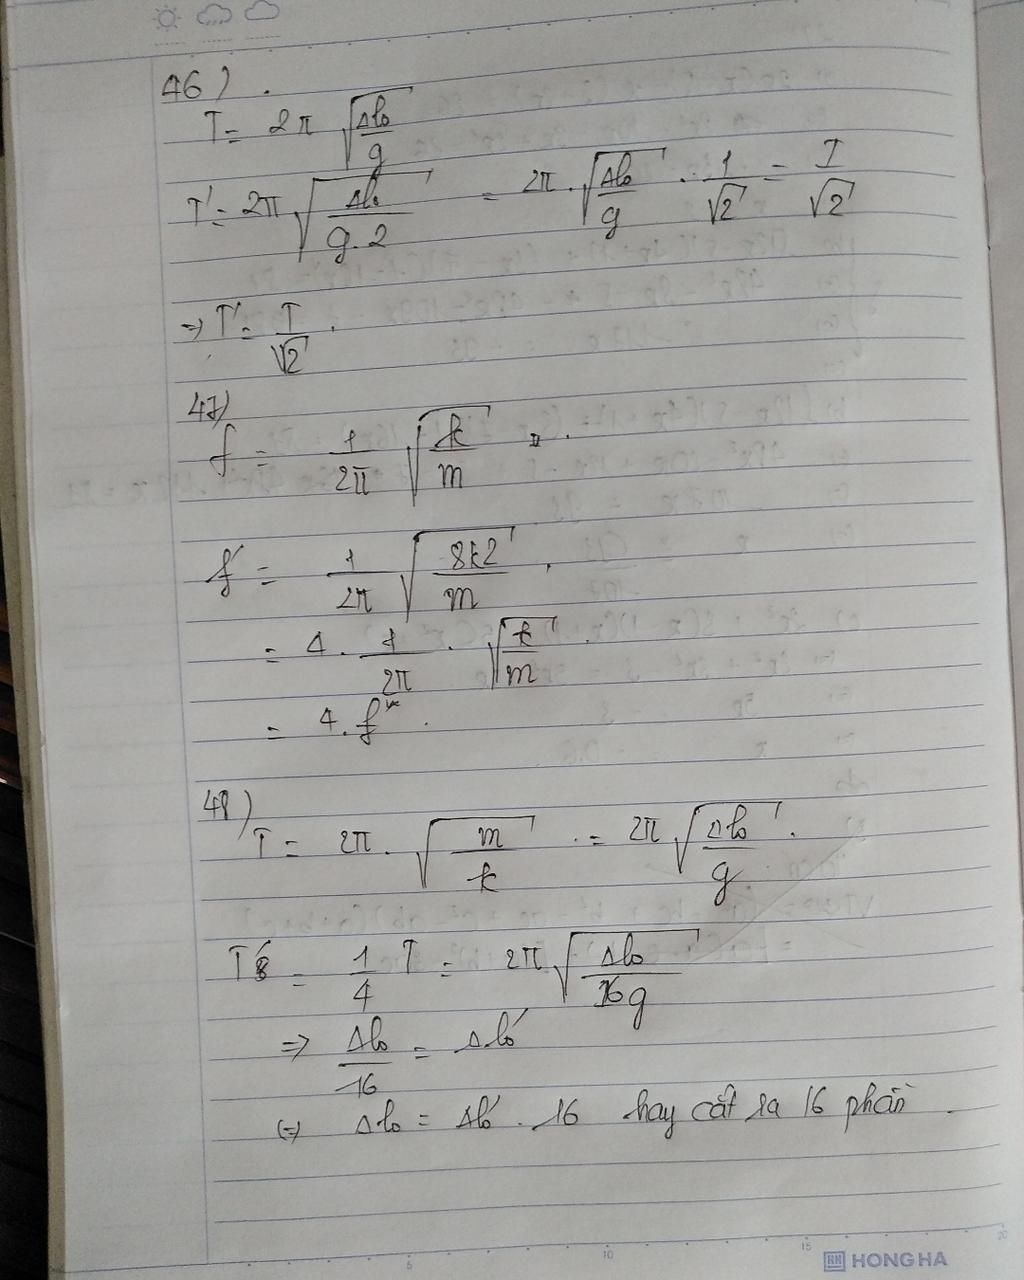 46) .
T = 2π √(Δl₀/g)
T' = 2π √(Δl₀/(g.2)) = 2π . √(Δl₀/g) . 1/√2 = T/√2
=> T' = T/√2 .
47)
f = 1/2π √(k/m) .
f' = 1/2π √(8k2/m) .
= 4 . 1/2π . √(k/m) .
= 4 . f .
48)
T = 2π . √(m/k) . = 2π √(Δl₀/g) .
T' = 1/4 T = 2π √(Δl₀/16g)
=> Δl₀/16 = Δl₀'
(=) Δl₀ = Δl₀' . 16 hay cắt ra 16 phần .
5 10 15 20
HONG HA